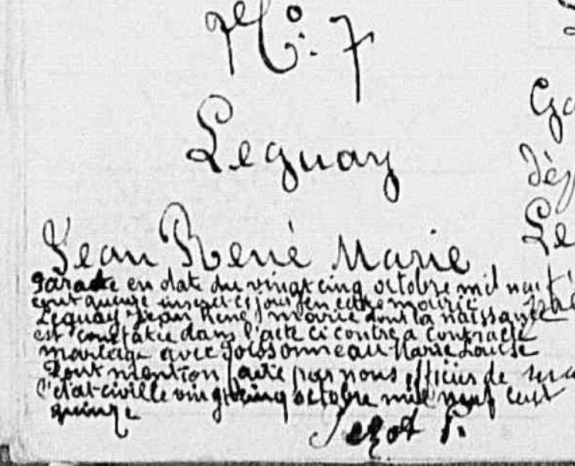 No: 7
Leguay
Jean René Marie
Par acte en date du vingt cinq octobre mil neuf
cent quinze inscrit ce jour en cette mairie
Leguay Jean René Marie dont la naissance
est constatée dans l'acte ci contre a contracté
mariage avec Marie Louise
Dont mention faite par nous officier de
l'état civil le vingt cinq octobre mil neuf cent
quinze